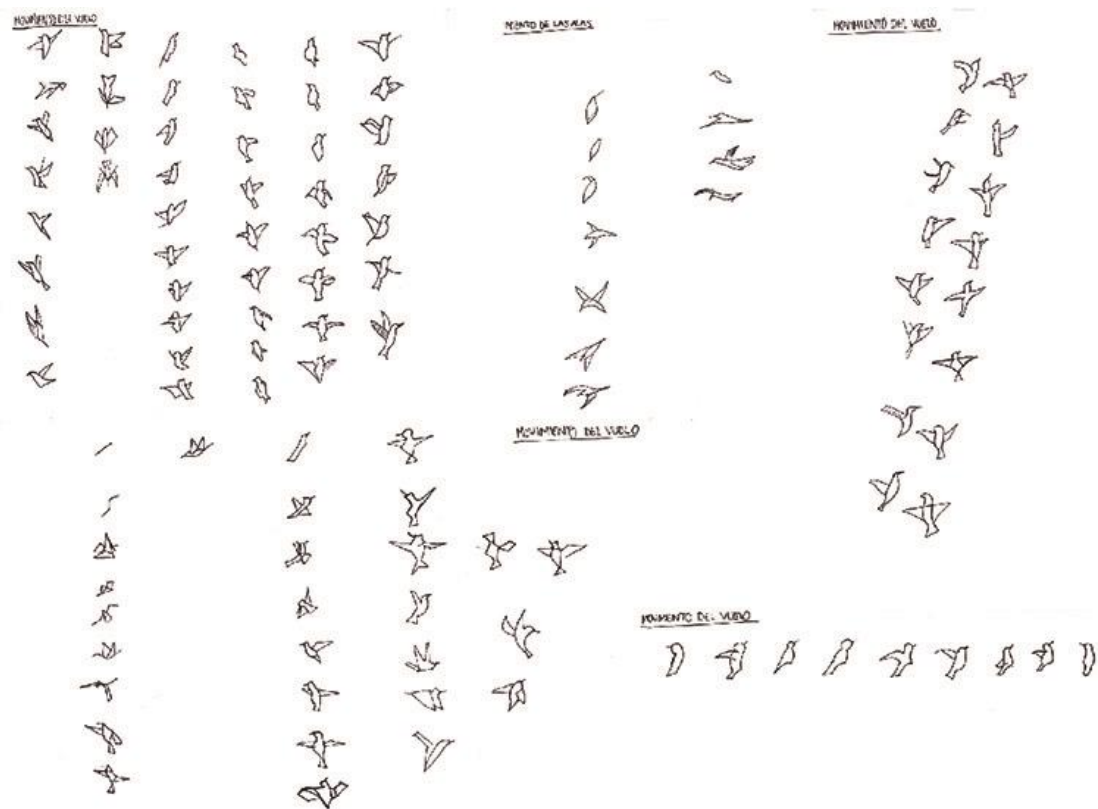 MOVIMIENTO DEL VUELO
MIENTO DE LAS ALAS
MOVIMIENTO DEL VUELO
MOVIMIENTO DEL VUELO
MOVIMENTO DEL VUELO